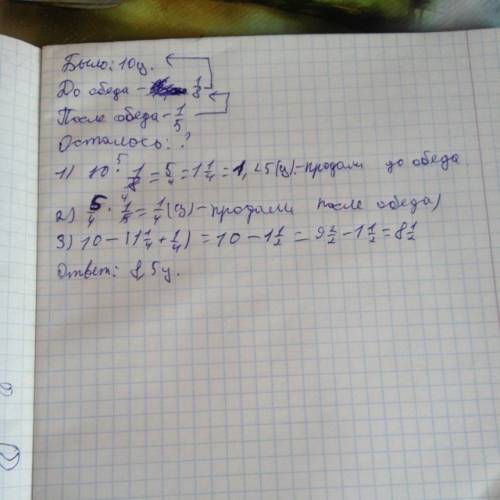 Было: 10ц.
До обеда - 1/8
После обеда - 1/5
Осталось: ?
1) 10 · 1/8 = 5/4 = 1 1/4 = 1,25(ц) - продали до обеда
2) 5/4 · 1/5 = 1/4 (ц) - продали после обеда)
3) 10 - (1 1/4 + 1/4) = 10 - 1 1/2 = 9 2/2 - 1 1/2 = 8 1/2
Ответ: 8,5ц.